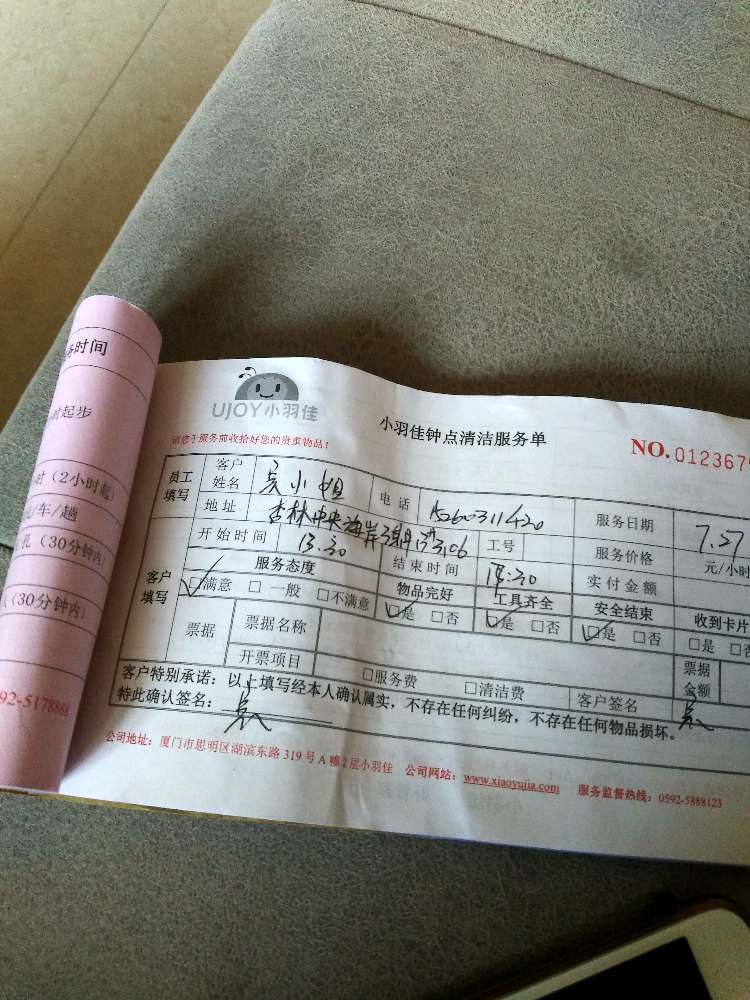 务时间
时起步
时（2小时起）
元/车/趟
孔（30分钟内）
（30分钟内）
92-5178888
UJOY小羽佳
小羽佳钟点清洁服务单
NO. 012367
请您于服务前收拾好您的贵重物品！
员工填写 客户姓名 吴小姐 电话 15260311420 服务日期 7.27
地址 杏林中央海岸 工号 服务价格 元/小时
客户填写 开始时间 13:30 结束时间 实付金额
服务态度 物品完好 工具齐全 安全结束 收到卡片
☑满意 □一般 □不满意 ☑是 □否 ☑是 □否 ☑是 □否 □是 □否
票据 票据名称 票据金额
开票项目 □服务费 □清洁费 客户签名 吴
客户特别承诺：以上填写经本人确认属实，不存在任何纠纷，不存在任何物品损坏。
特此确认签名：吴
公司地址：厦门市思明区湖滨东路319号A幢2层小羽佳 公司网站：www.xiaoyujia.com 服务监督热线：0592-5888123